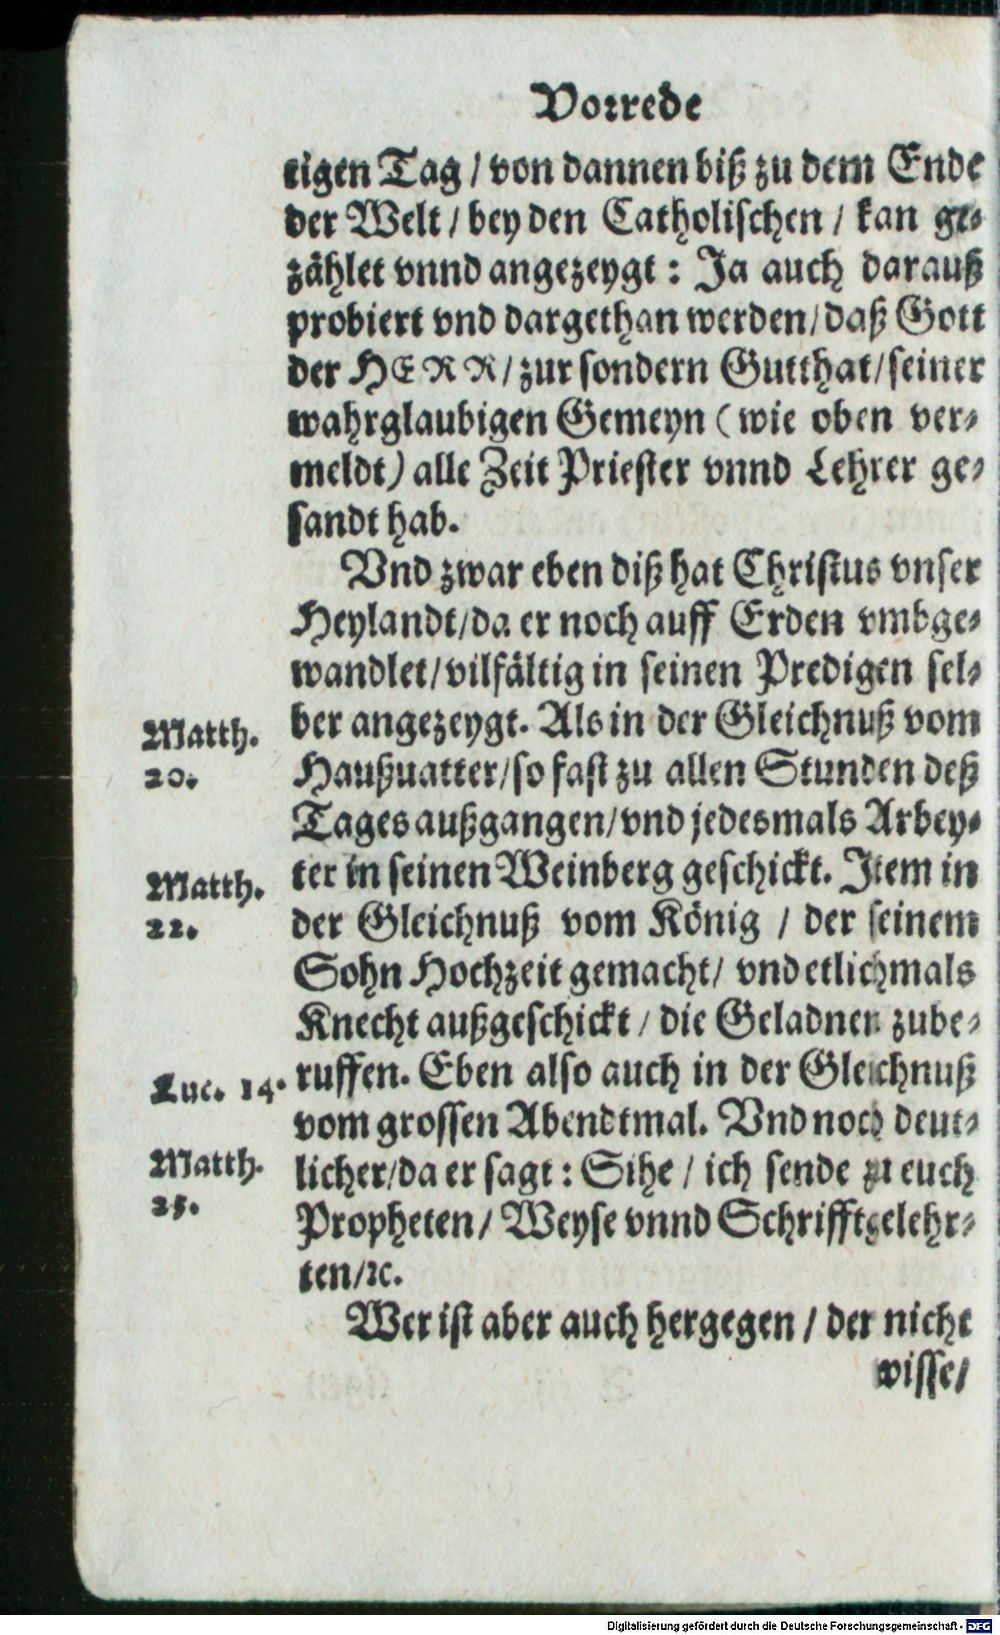 Vorrede
tigen Tag / von dannen biß zu dem Ende
der Welt / bey den Catholischen / kan ge-
zählet vnnd angezeygt : Ja auch darauß
probiert vnd dargethan werden / daß Gott
der HERR / zur sondern Gutthat / seiner
wahrglaubigen Gemeyn ( wie oben ver-
meldt ) alle Zeit Priester vnnd Lehrer ge-
sandt hab.
Vnd zwar eben diß hat Christus vnser
Heylandt / da er noch auff Erden vmbge-
wandlet / vilfältig in seinen Predigen sel-
ber angezeygt. Als in der Gleichnuß vom
Matth.
20.
Haußuatter / so fast zu allen Stunden deß
Tages außgangen / vnd jedesmals Arbey-
ter in seinen Weinberg geschickt. Item in
Matth.
22.
der Gleichnuß vom König / der seinem
Sohn Hochzeit gemacht / vnd etlichmals
Knecht außgeschickt / die Geladnen zube-
ruffen. Eben also auch in der Gleichnuß
Luc. 14.
vom grossen Abendtmal. Vnd noch deut-
licher / da er sagt : Sihe / ich sende zu euch
Matth.
25.
Propheten / Weyse vnnd Schrifftgelehr-
ten / ꝛc.
Wer ist aber auch hergegen / der nicht
wisse /
Digitalisierung gefördert durch die Deutsche Forschungsgemeinschaft - DFG